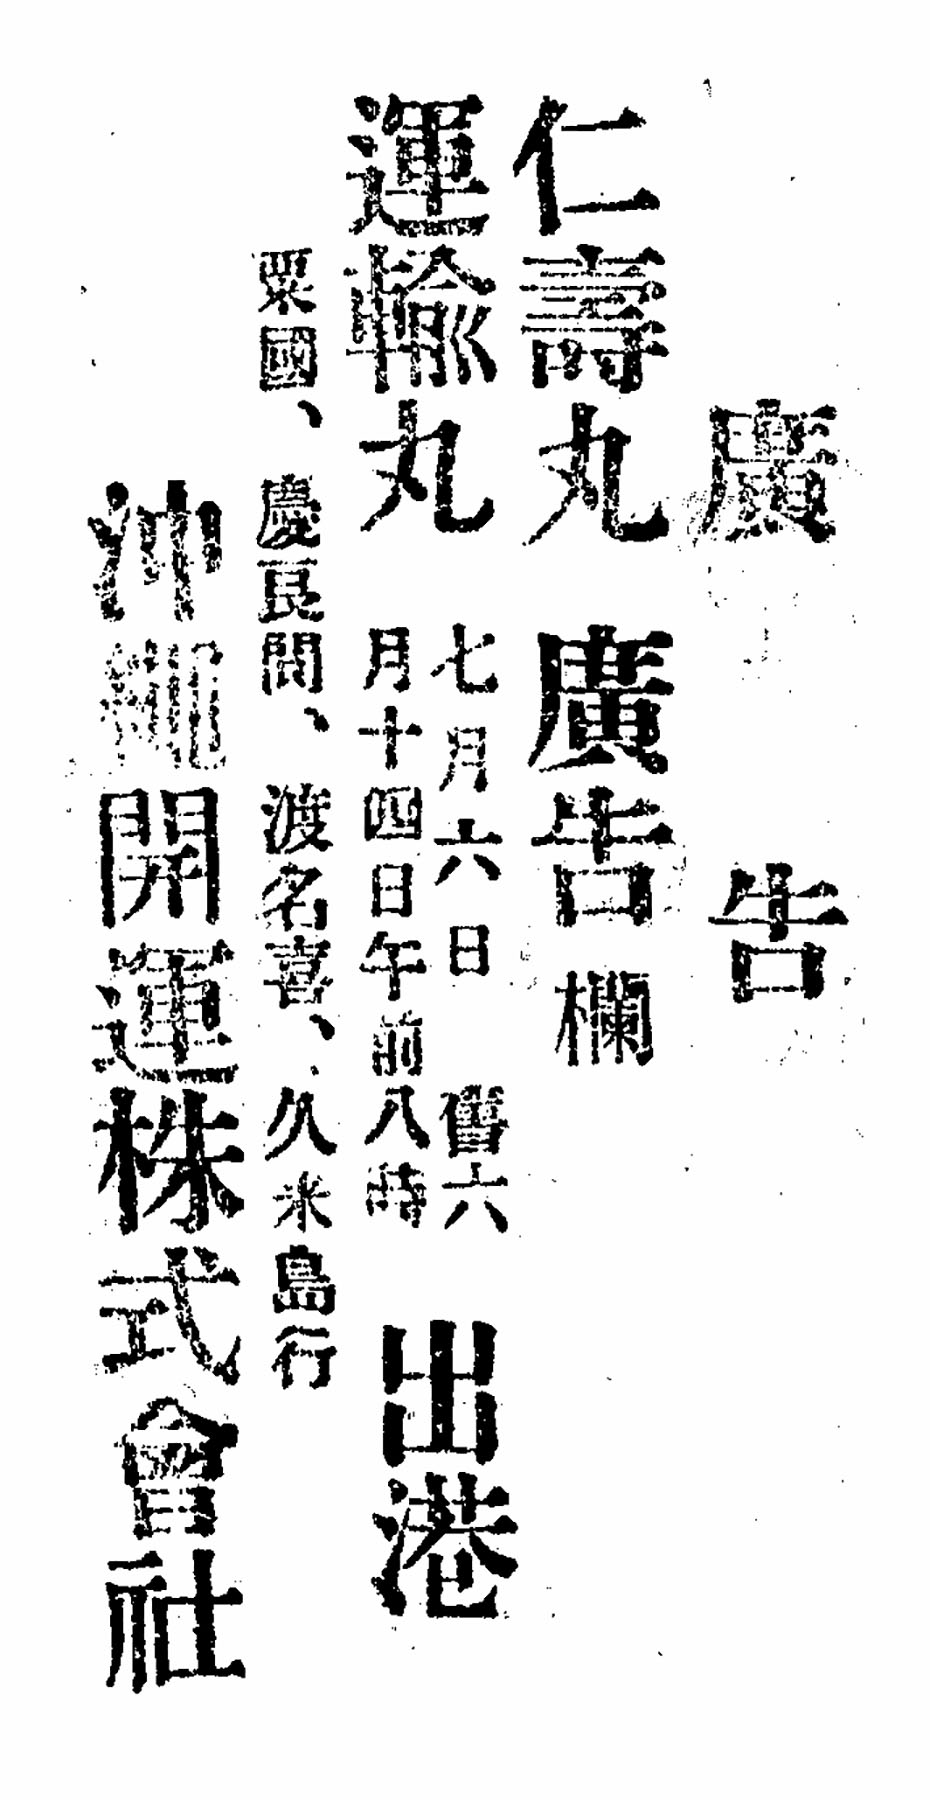 廣告
仁壽丸 廣告欄
運輸丸 七月六日 舊六
月十四日午前八時 出港
粟國、慶良間、渡名喜、久米島行
沖縄開運株式會社